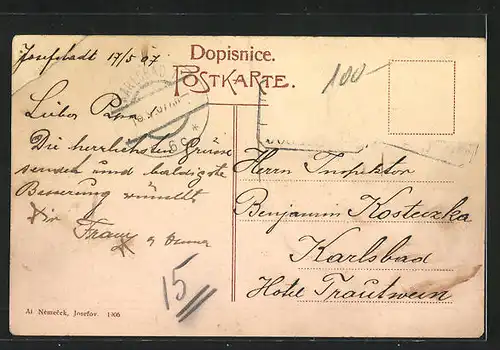 Josefstadt 17/5 07
Dopisnice.
POSTKARTE.
100-
KARLSBAD
Lieber Papa
Die herrlichsten Grüsse
senden und baldigste
Besserung wünscht
Dir
Franz &
Herrn Inspektor
Benjamin Kosteczka
Karlsbad
Hotel Trautwein
15
Al Němeček, Josefov. 1906